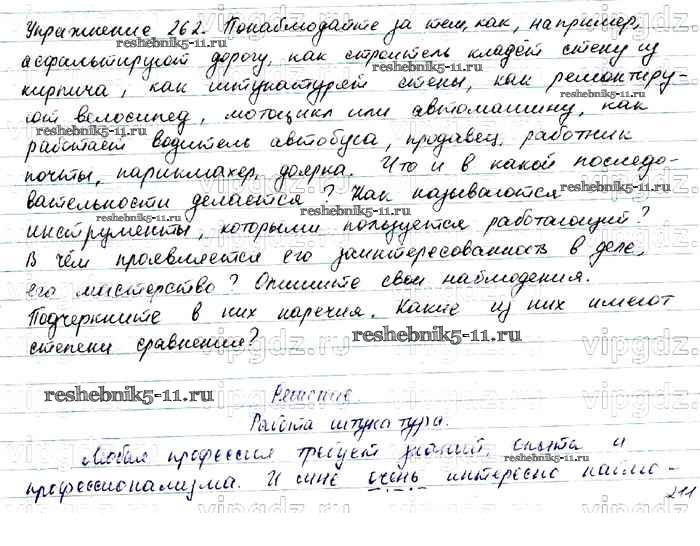 Упражнение 262. Понаблюдайте за тем, как, например,
асфальтируют дорогу, как строитель кладёт стену из
кирпича, как штукатурят стены, как ремонтиру-
ют велосипед, мотоцикл или автомашину, как
работает водитель автобуса, продавец, работник
почты, парикмахер, доярка. Что и в какой последо-
вательности делается? Как называются
инструменты, которыми пользуется работающий?
В чём проявляется его заинтересованность в деле,
его мастерство? Опишите свои наблюдения.
Подчеркните в них наречия. Какие из них имеют
степени сравнения?
reshebnik5-11.ru
Решение.
Работа штукатура.
Любая профессия требует знаний, опыта и
профессионализма. И мне очень интересно наблю-
211